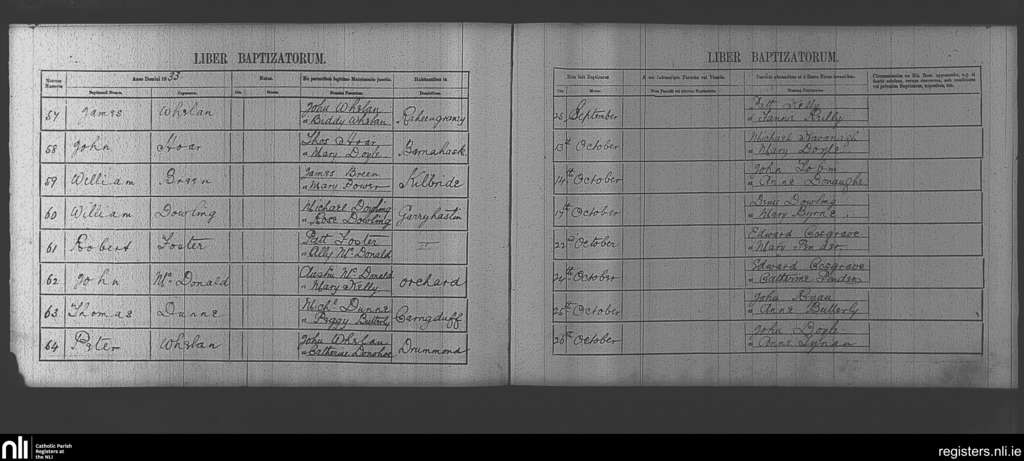 LIBER BAPTIZATORUM.
Anno Domini 1833
Numerus
Natus.
Ex parentibus legitimo Matrimonio junctis
Habitantibus in
Baptizati Nomen.
Cognomen.
Die
Mensis
Nomina Parentum
Domicilium
57 James Whelan
John Whelan
" Biddy Whelan
Raheengraney
58 John Hoar
Thos Hoar
" Mary Doyle
Barnahask
59 William Breen
James Breen
" Mary Power
Kilbride
60 William Dowling
Michael Dowling
" Rose Dowling
Garryhastin
61 Robert Foster
Patt Foster
" Ally Mc Donald
62 John Mc Donald
Austin Mc Donald
" Mary Kelly
orchard
63 Thomas Dunne
Michl Dunne
" Peggy Butterly
Carngduff
64 Peter Whelan
John Whelan
" Catherine Donohoe
Drummond
LIBER BAPTIZATORUM.
Mensis
25 September
Patt Kelly
13th October
Michael Kavanagh
" Mary Doyle
14th October
John Tobin
" Anne Donaughe
19th October
Denis Dowling
" Mary Byrne
22nd October
Edward Cosgrave
" Mary Pender
24th October
Edward Cosgrave
" Catherine Pender
25th October
John Ryan
" Anne Butterly
26th October
John Doyle
" Anne
nli
Catholic Parish
Registers at
the NLI
registers.nli.ie